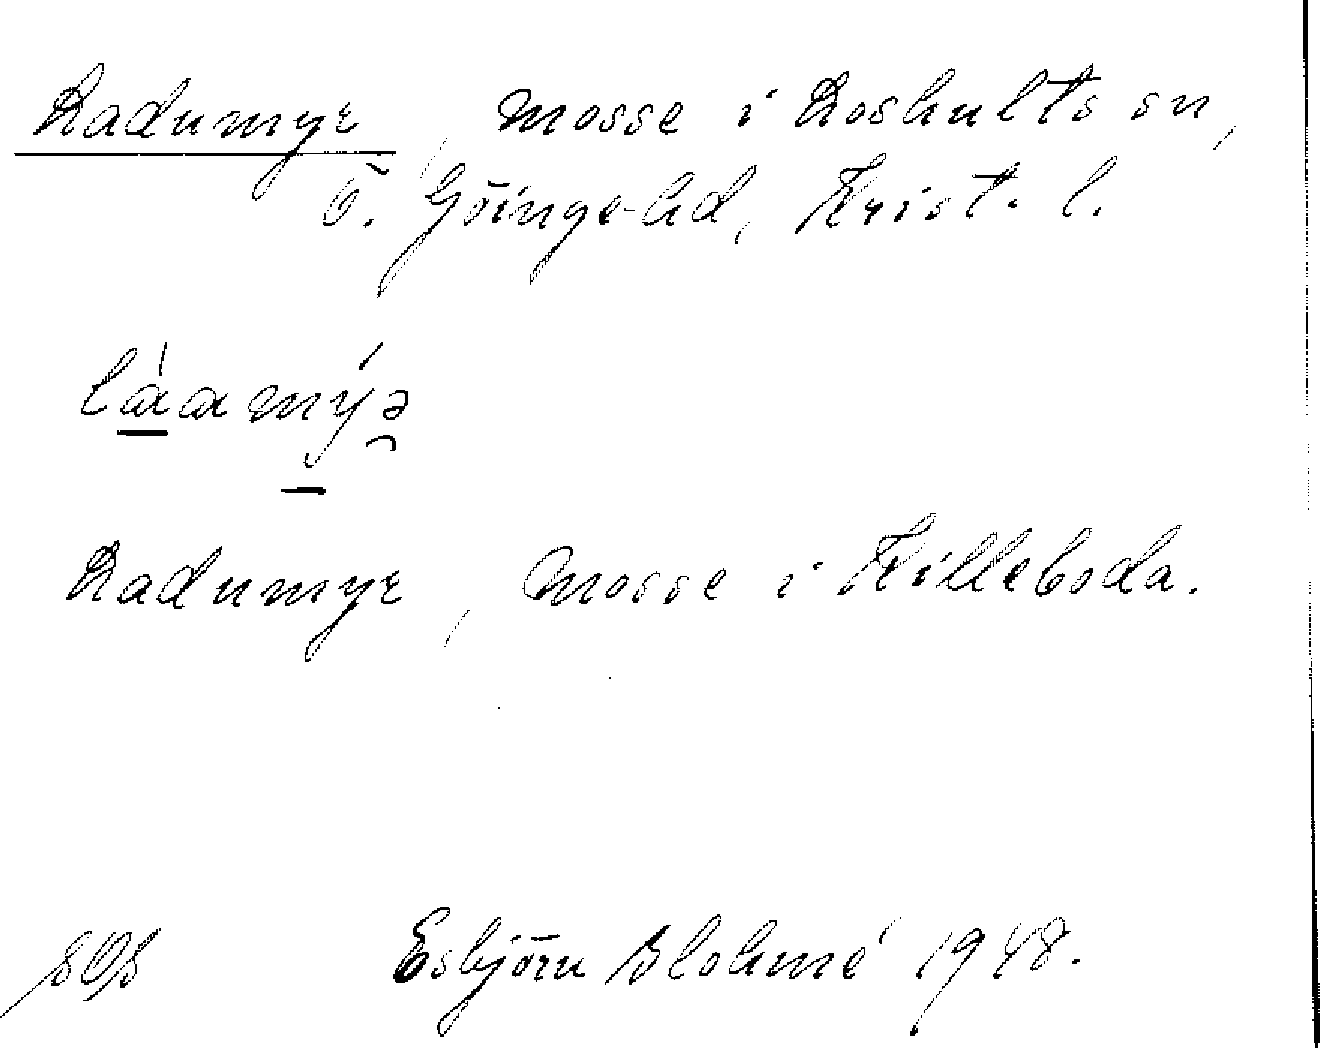 Ladumyr, mosse i Loshults sn,
Ö. Göinge hd, Krist. l.
láamýə
Ladumyr, mosse i Killeboda.
Esbjörn Blohmé 1948.